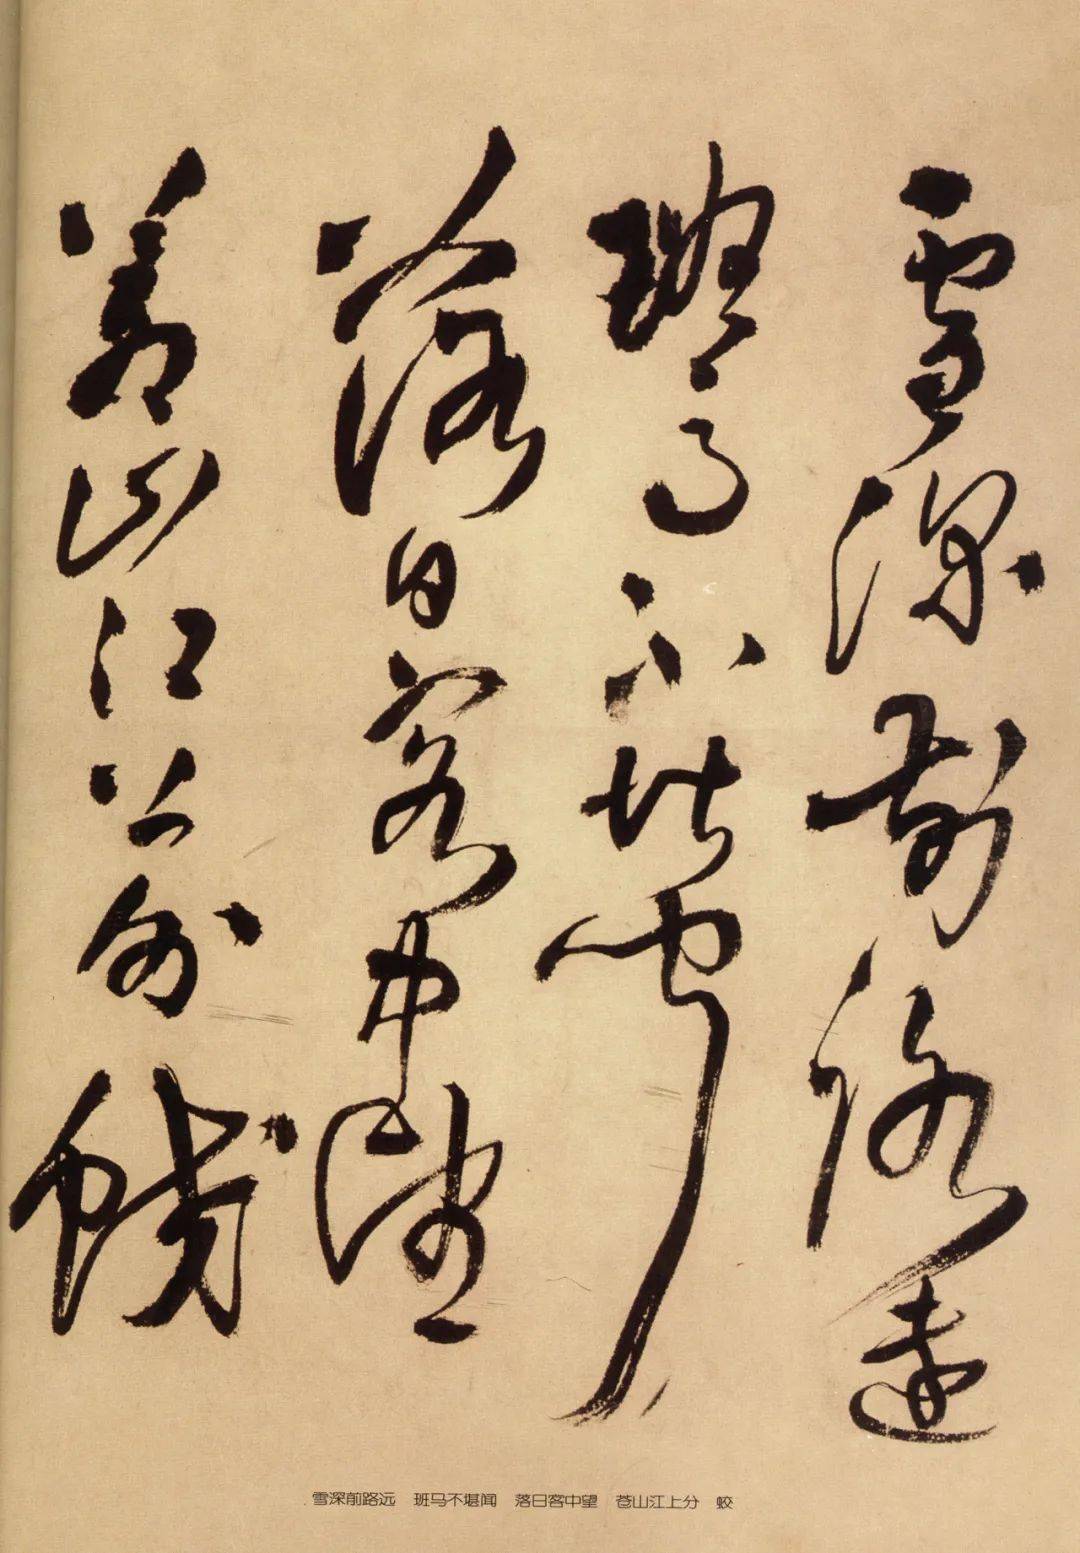 雪深前路遠
班馬不堪聞
落日客中望
蒼山江上分
雪深前路远 班马不堪闻 落日客中望 苍山江上分 蛟